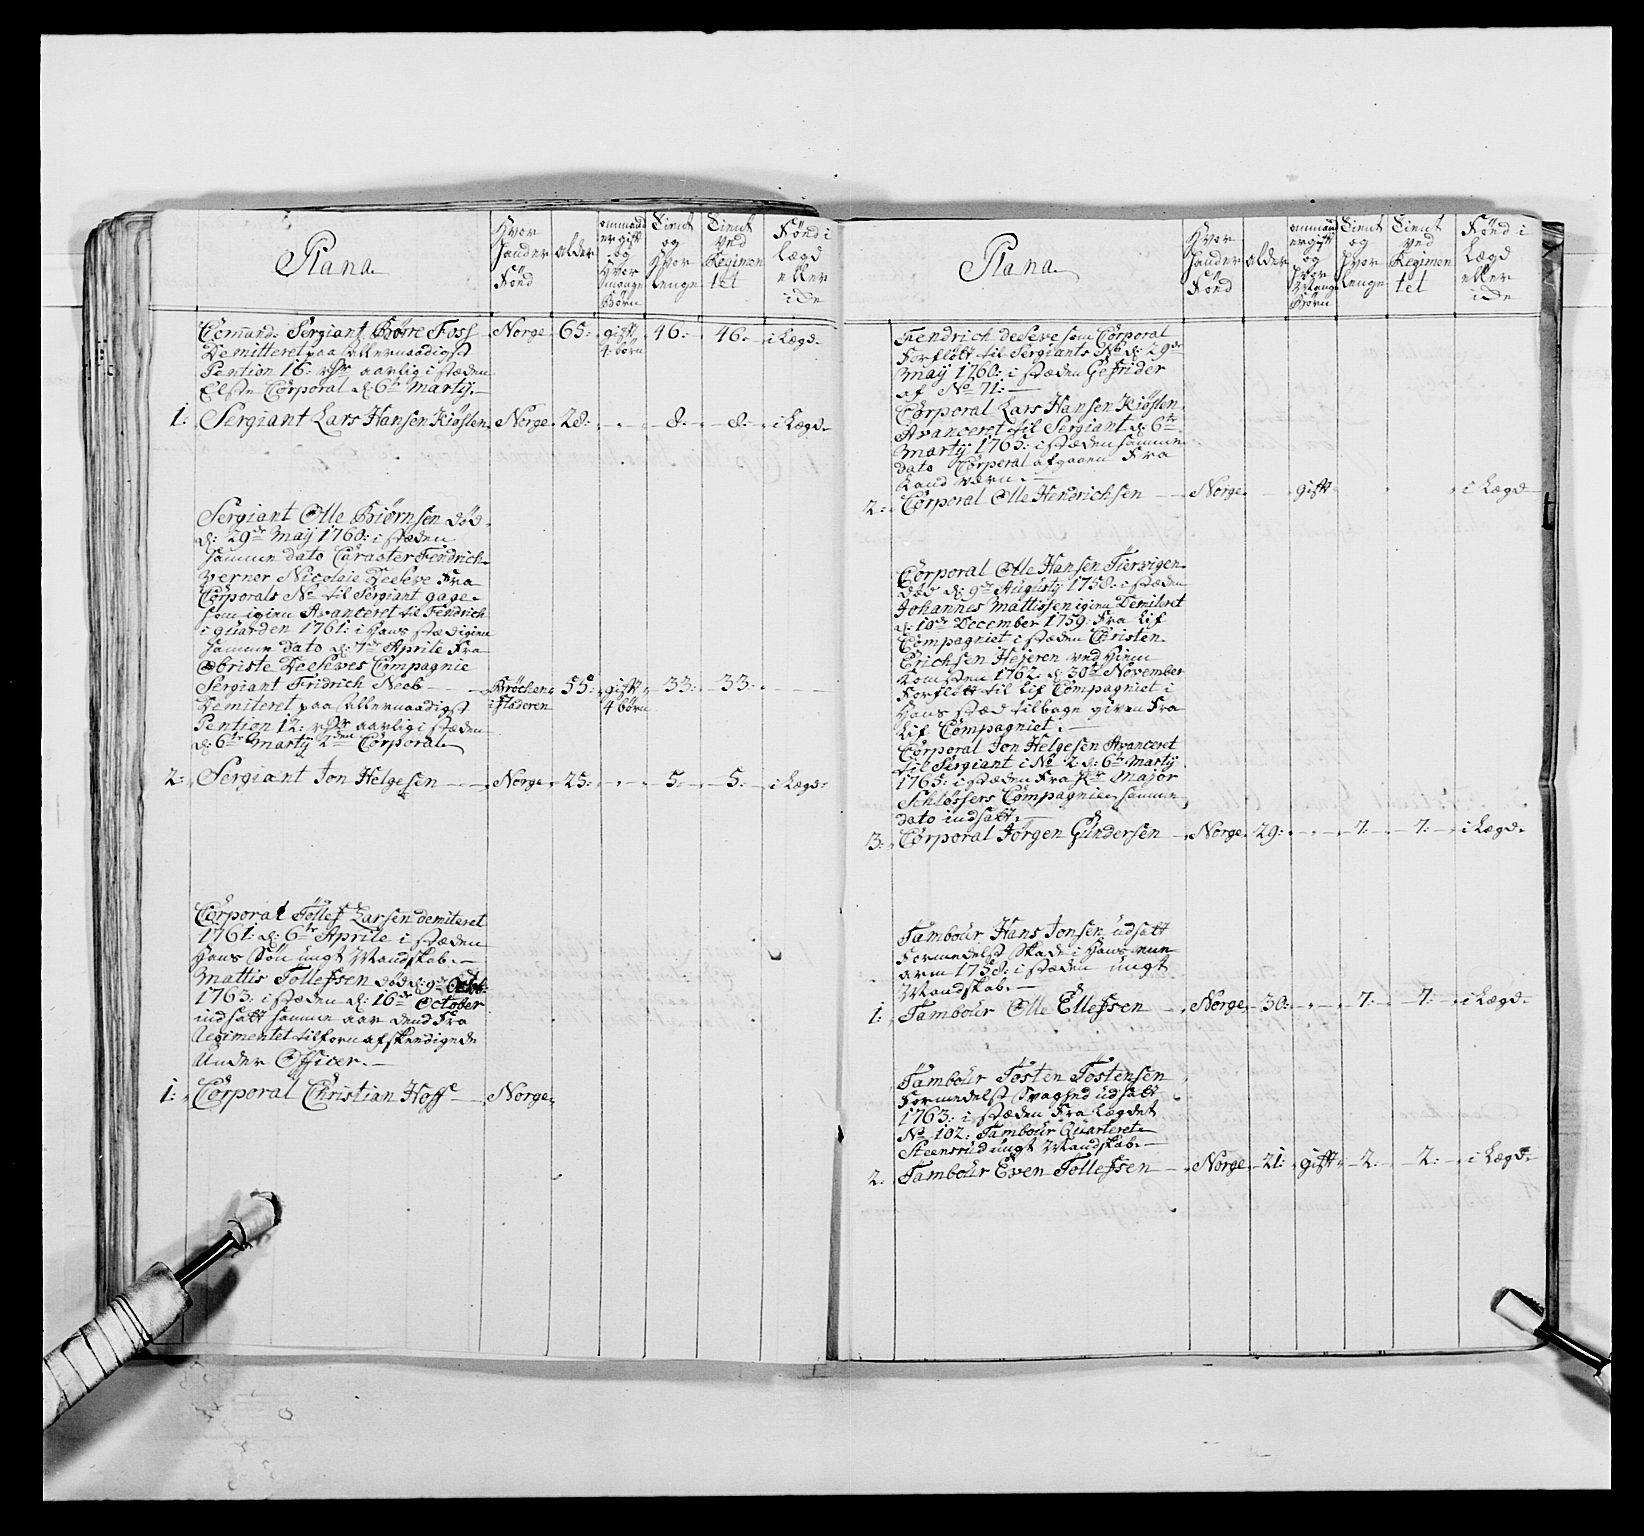 Plana
Hvor
hand er
Fönd
alder
ommand
er gift
og
Hvor
mange
Börn
Tient
og
Hvor
lenge
Tient
ved
Regimen
tet
Fönd i
Lægd
eller
ide
Comand: Sergiant Börre Foss Norge 65: gift 46: 46. i Lægd.
Demitteret paa Allernaadigst 4 börn
Pention 16: rdr aarlig i stæden
Elste Corporal d: 6te Martij.
1: Sergiant Lars Hansen Kiöslen Norge 28. 8. 8. i Lægd.
Sergiant Olle Biörnsen död.
d: 29de Maij 1760: i stæden
samme dato Caracter Fendrich
Verner Nicolaie DeSeve Fra
Corporals No til Sergiant gage.
som igien Avanceret til Fendrich
i guarden 1761: i Hans stæd igien
samme dato d: 7de Aprile Fra
Obriste DeSeves Compagnie
Sergiant Fridrich Neeb Bröchen 55: gift 33. 33.
Demiteret paa Allernaadigst i staderen 4 börn
Pention 12: rdr aarlig i stæden
d: 6te Martij 2den Corporal.
2. Sergiant Jon Helgesen Norge 25: 5. 5. i Lægd.
Corporal Tollef Larsen demiteret
1761: d: 6te Aprile i stæden
Hans Sön ungt Mandskab.
Mattis Tollefsen död d: 9de Octb:
1763. i stæden d: 16de October
indsatt samme aar dend Fra
Regimentet tilforn afskendigede
Under Officer.
1: Corporal Christian Hoff Norge.
Plana
Hvor
hand er
Fönd
alder
ommand
er gift
og
hvor
Mange
Börn
Tient
og
Hvor
lenge
Tient
ved
Regimen
tet
Fönd i
Lægd
eller
ide
Fendrich deSeve som Corporal
Forflött til Sergiants No d: 29de
Maij 1760: i stæden Gefrider
af No 71:
Corporal Lars Hansen Kiöslen
Avanceret til Sergiant d: 6te
Martij 1765: i stæden samme
dato Corporal afgaaen Fra
Land værn.
2: Corporal Olle Hendrichsen Norge gift i Lægd
Corporal Olle Hansen Tiervigen
död d: 9de Augusty 1758. i stæden
Johannes Mattissen igien Demiteret
d: 10de December 1759. Fra Lif
Compagniet i stæden Christen
Erichsen Hejeren ved Hiem
Komsten 1762. d: 30te November
Forflött til Lif Compagniet i
Hans stæd tilbage given Fra
Lif Compagniet.
Corporal Jon Helgesen Avanceret
til Sergiant i No 2 d: 6te Martij
1765: i stæden Fra Hr Major
Schlössers Compagnie samme
dato indsatt.
3: Corporal Jörgen Gundersen Norge 29: 7. 7. i Lægd.
Tambour Hans Jonsen udsatt
Formedelst Skade i Hans
arm 1758. i stæden ungt
Mandskab.
1: Tambour Olle Ellefsen Norge 30: 7: 7: i Lægd.
Tambour Tosten Tostensen
Formedelst Svaghed udsatt
1763: i stæden Fra Lægdet
No 102: Tambour Quarteret
Steensrud ungt Mandskab.
2. Tambour Even Tollefsen Norge 21: gift 2. 2: i Lægd.